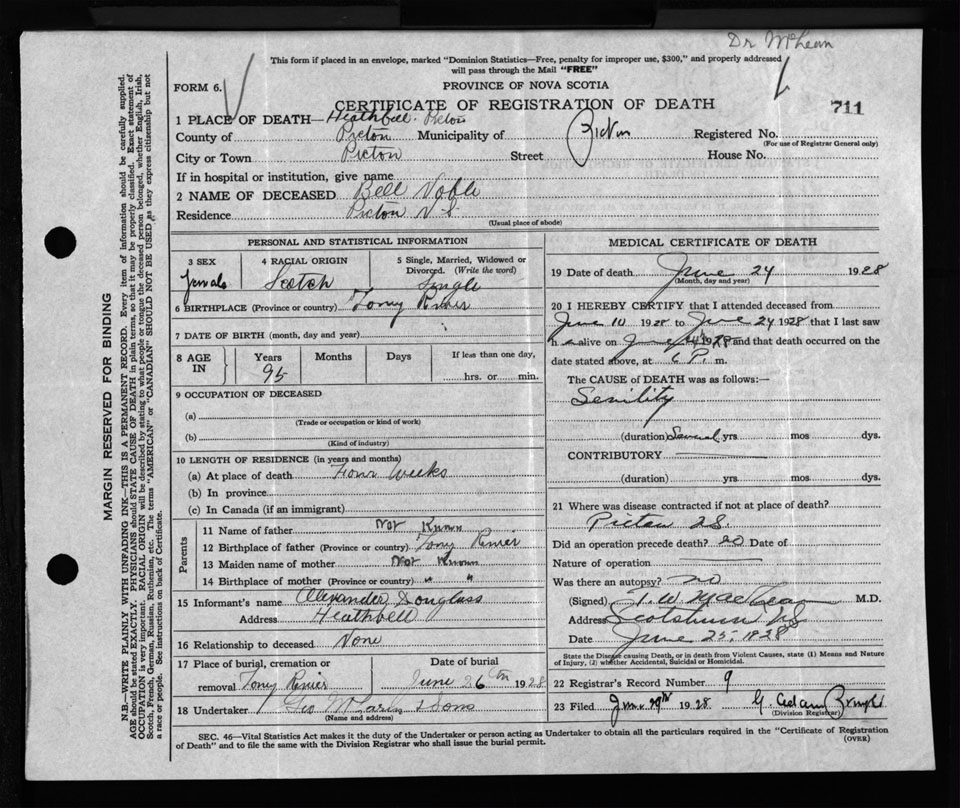 Dr McLean
This form if placed in an envelope, marked "Dominion Statistics—Free, penalty for improper use, $300," and properly addressed
will pass through the Mail "FREE"
FORM 6.
PROVINCE OF NOVA SCOTIA
CERTIFICATE OF REGISTRATION OF DEATH
711
1 PLACE OF DEATH—Heathbell. Picton
County of Picton Municipality of Picton Registered No.
(For use of Registrar General only)
City or Town Picton Street House No.
If in hospital or institution, give name
2 NAME OF DECEASED Bell Noble
Residence Picton N S
(Usual place of abode)
PERSONAL AND STATISTICAL INFORMATION
3 SEX 4 RACIAL ORIGIN 5 Single, Married, Widowed or
Divorced. (Write the word)
Female Scotch Single
6 BIRTHPLACE (Province or country) Tony River
7 DATE OF BIRTH (month, day and year)
8 AGE IN Years Months Days If less than one day,
95 hrs. or min.
9 OCCUPATION OF DECEASED
(a)
(Trade or occupation or kind of work)
(b)
(Kind of industry)
10 LENGTH OF RESIDENCE (in years and months)
(a) At place of death Four Weeks
(b) In province
(c) In Canada (if an immigrant)
Parents
11 Name of father Not Known
12 Birthplace of father (Province or country) Tony River
13 Maiden name of mother Not Known
14 Birthplace of mother (Province or country) " "
15 Informant's name Alexander Douglass
Address Heathbell
16 Relationship to deceased None
17 Place of burial, cremation or Date of burial
removal Tony River June 26th 1928
18 Undertaker Geo McLaren & Sons
(Name and address)
MEDICAL CERTIFICATE OF DEATH
19 Date of death June 24 1928
(Month, day and year)
20 I HEREBY CERTIFY that I attended deceased from
June 10 1928 to June 24 1928 that I last saw
h alive on June 1928 and that death occurred on the
date stated above, at 6 P. m.
The CAUSE of DEATH was as follows:—
Senility
(duration) Several yrs mos dys.
CONTRIBUTORY
(duration) yrs mos dys.
21 Where was disease contracted if not at place of death?
Pictou NS.
Did an operation precede death? no Date of
Nature of operation
Was there an autopsy? no
(Signed) T. W. MacLean M.D.
Address Scotsburn NS
Date June 25, 1928
State the Disease causing Death, or in death from Violent Causes, state (1) Means and Nature
of Injury, (2) whether Accidental, Suicidal or Homicidal.
22 Registrar's Record Number 9
23 Filed 1928 G. Adam
(Division Registrar)
SEC. 46—Vital Statistics Act makes it the duty of the Undertaker or person acting as Undertaker to obtain all the particulars required in the "Certificate of Registration
of Death" and to file the same with the Division Registrar who shall issue the burial permit.
(OVER)
MARGIN RESERVED FOR BINDING
N.B.—WRITE PLAINLY WITH UNFADING INK—THIS IS A PERMANENT RECORD. Every item of information should be carefully supplied.
AGE should be stated EXACTLY. PHYSICIANS should STATE CAUSE OF DEATH in plain terms, so that it may be properly classified. Exact statement of
OCCUPATION is very important. RACIAL ORIGIN will be described by stating to what people or tongue the deceased person belonged, whether English, Irish,
Scotch, French, German, Russian, Ruthenian, etc. The terms "AMERICAN" or "CANADIAN" SHOULD NOT BE USED as they express citizenship but not
a race or people. See instructions on back of Certificate.